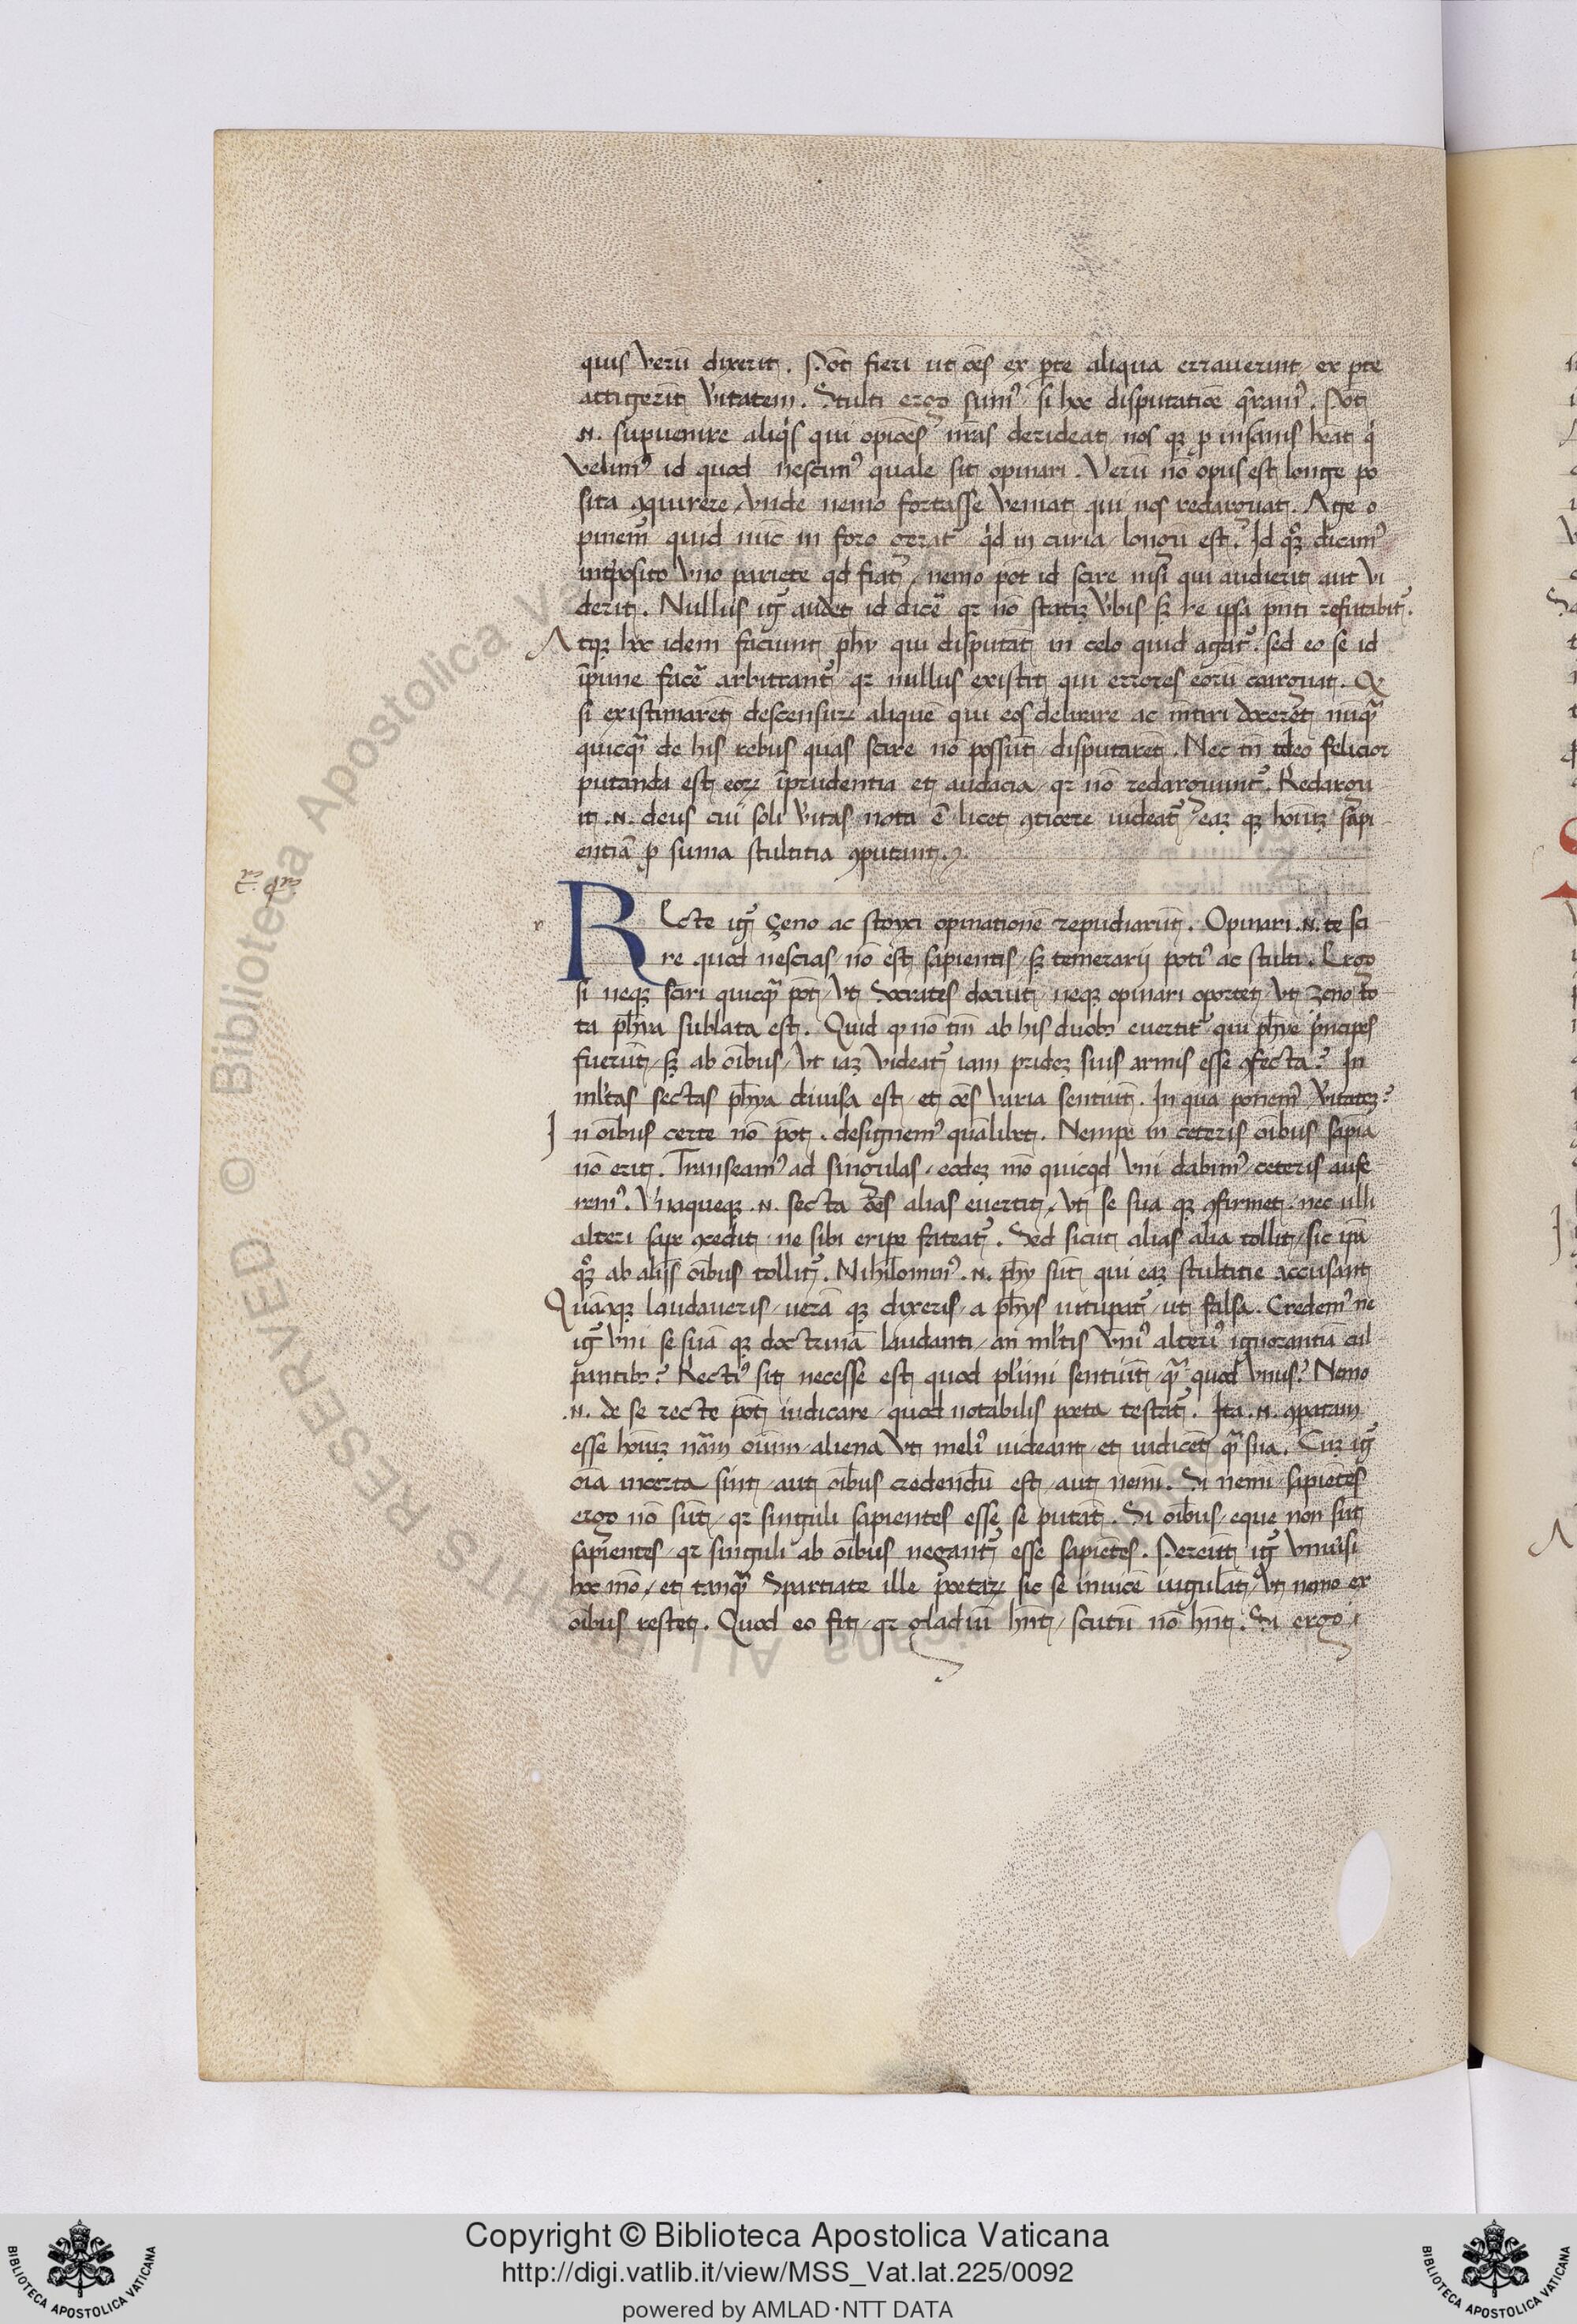 quis verū dixerit. Pōt fieri ut oēs ex pte aliqua erraverint / ex pte
attigerīt v̄itatem. Stulti ergo sumꝰ / si hoc disputatiōe q̄ramꝰ. Pōt
.N. supvenire aliq̇s qui opiōes nr̄as derideat / nos qꝫ p insanis hēat q̇
velimꝰ id quod nescimꝰ quale sit opinari. Verū nō opus est longe po
sita ꝯquirere / unde nemo fortasse veniat qui nos redarguat. Age o
pinemʳ quid nūc in foro gerat᷑ / q̇d in curia / longū est. Id qꝫ dicamꝰ
intˀposito uno pariete qd fiat᷑ / nemo pot id scire nisi qui audierit aut vi
derit. Nullus ig᷑ audet id dicē᷑ qꝛ nō statiꝫ v̄bis sꝫ re ipsa pn̄ti refutabit᷑.
Atqꝫ hoc idem faciunt phy qui disputāt in celo quid agat᷑. sed eo se id
īpune facē᷑ arbitrant᷑ / qꝛ nullus existit qui errores eorū coarguat. Q
si existimarēt descensurꝫ aliquē qui eos delirare ac mētiri docerēt nūqᷓ
quicqᷓ de his rebus quas scire nō possūt / disputarēt. Nec tn̄ ideo felicior
putanda est eoꝝ īprudentia et audacia / qꝛ nō redarguunt᷑. Redargu
it .N. deus cui soli v̄itas nota ē / licet ꝯticere uideat᷑ / eaꝫ qꝫ hoīuꝫ sapi
entiā p suma stultitia ꝯputant.
Recte ig᷑ Çeno ac stoyci opinationē repudiarūt. Opinari .N. te sci
re quod nescias / nō est sapientis / sꝫ temerarij potiꝰ ac stulti. Ergo
si neqꝫ sciri quicqᷓ pōt / ut Socrates docuit / neqꝫ opinari oportet / ut Zeno to
ta phya sublata est. Quid ꝙ nō tm̄ ab his duobꝫ evertit᷑ qui phye prīcipes
fuerūt / sꝫ ab oībus / ut iaꝫ videat᷑ iam prideꝫ suis armis esse ꝯfecta? In
ml̄tas sectas phya divisa est / et oēs varia sentiūt. In qua ponemꝰ v̄itateꝫ?
In oībus certe nō pōt. designemꝰ quālibet. Nempe in ceteris oībus sapīa
nō erit. Transeamꝰ ad singulas / eodeꝫ mō quicqd uni dabimꝰ / ceteris aufe
remꝰ. Unaqueqꝫ .N. secta oēs alias evertit / ut se sua qꝫ ꝯfirmet / nec ulli
alteri sape ꝯcedit / ne sibi eripe fateat᷑. Sed sicut alias alia tollit / sic ipā
qꝫ ab alijs oībus tollit᷑. Nihilominꝰ .N. phy sūt qui eaꝫ stultitie accusant
Quācqꝫ laudaveris / verā qꝫ dixeris / a phys vitupat᷑ / ut falsa. Credemꝰ ne
ig᷑ uni se suā qꝫ doctrinā laudanti / an ml̄tis uniꝰ alteriꝰ ignorantiā cul
pantibꝫ? Rectiꝰ sit necesse est quod pl̄imi sentiūt / qᷓ quod unus? Nemo
.N. de se recte pōt iudicare / quod notabilis poeta testat᷑. Ita .N. ꝯparam
esse hoīuꝫ nāʳm oīum / aliena ut meliꝰ uideant / et iudicēt qᷓ sua. Cuꝫ ig᷑
oīa incerta sint / aut oībus credendū est / aut nemī. Si nemī / sapientēs
ergo nō sūt / qꝛ singuli sapientes esse se putāt. Si oībus / eque non sūt
sapientes / qꝛ singuli ab oībus negant᷑ esse sapiētes. Pereūt ig᷑ universi
hoc mō / et tanqᷓ Spartiate ille poetaꝝ sic se invicē iugulāt / ut nemo ex
oībus restet. Quod eo fit / qꝛ gladiū hn̄t / scutū nō hn̄t. Si ergo
Copyright © Biblioteca Apostolica Vaticana
http://digi.vatlib.it/view/MSS_Vat.lat.225/0092
powered by AMLAD·NTT DATA
BIBLIOTECA APOSTOLICA VATICANA
BIBLIOTECA APOSTOLICA VATICANA